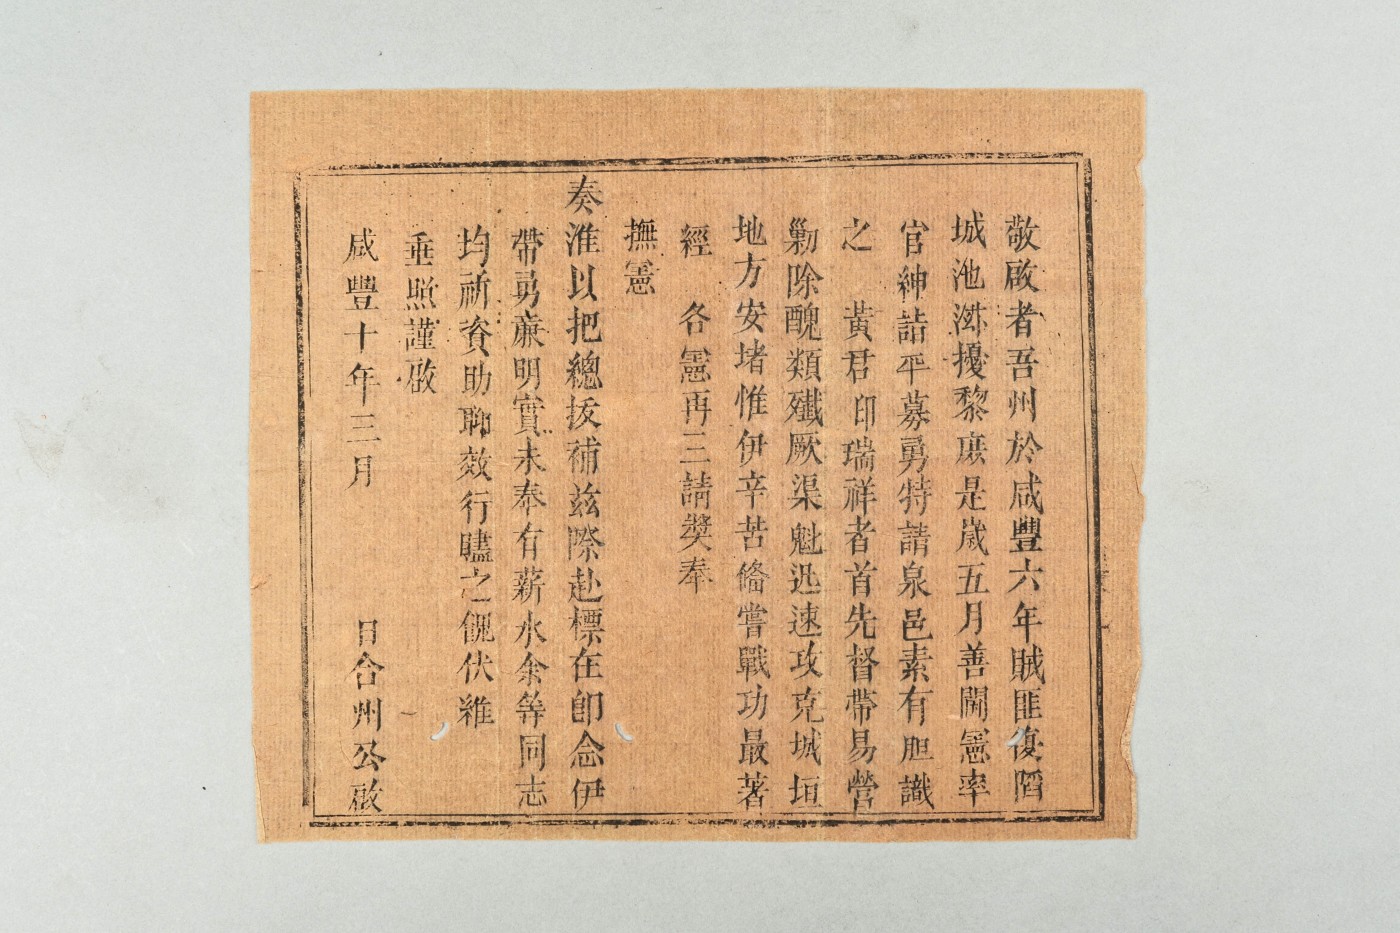 敬啟者吾州於咸豐六年賊匪復陷
城池滋擾黎庶是歲五月善闗憲率
官紳詣平募勇特請泉邑素有胆識
之　黃君印瑞祥者首先督帶易營
勦除醜類殲厥渠魁迅速攻克城垣
地方安堵惟伊辛苦俻嘗戰功最著
經　各憲再三請奬奉
撫憲
奏准以把總拔補茲際赴標在卽念伊
帶勇廉明實未奉有薪水余等同志
均祈資助聊效行贐之儀伏維
垂照謹啟
咸豐十年三月　日合州公啟